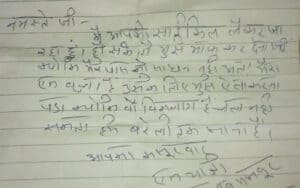 नमस्ते जी -
मै आपकी साईकिल लेकर जा
रहा हूं। हो सके तो मुझे माफ कर देना जी
क्योंकि मेरे पास को साधन नही
एक बच्चा है उसके लिए मुझे ऐसा करना
पड़ा क्योंकि वो विकलांग है चल नही
सकता हमे बरेली तक जाना है।
आपका कसूरवार
एक यात्री
एवं मजबूर